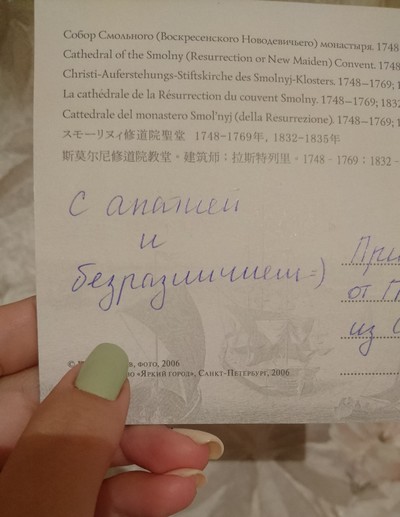 Собор Смольного (Воскресенского Новодевичьего) монастыря. 1748
Cathedral of the Smolny (Resurrection or New Maiden) Convent. 1748
Christi-Auferstehungs-Stiftskirche des Smolnyj-Klosters. 1748–1769; 1
La cathédrale de la Résurrection du couvent Smolny. 1748–1769; 1832
Cattedrale del monastero Smol'nyj (della Resurrezione). 1748–1769; 1
スモーリヌィ修道院聖堂 1748-1769年, 1832-1835年
斯莫尔尼修道院教堂。建筑师：拉斯特列里。1748 - 1769；1832 -
С апатией
и
безразличием =)
При
от
из
, фото, 2006
«Яркий город», Санкт-Петербург, 2006